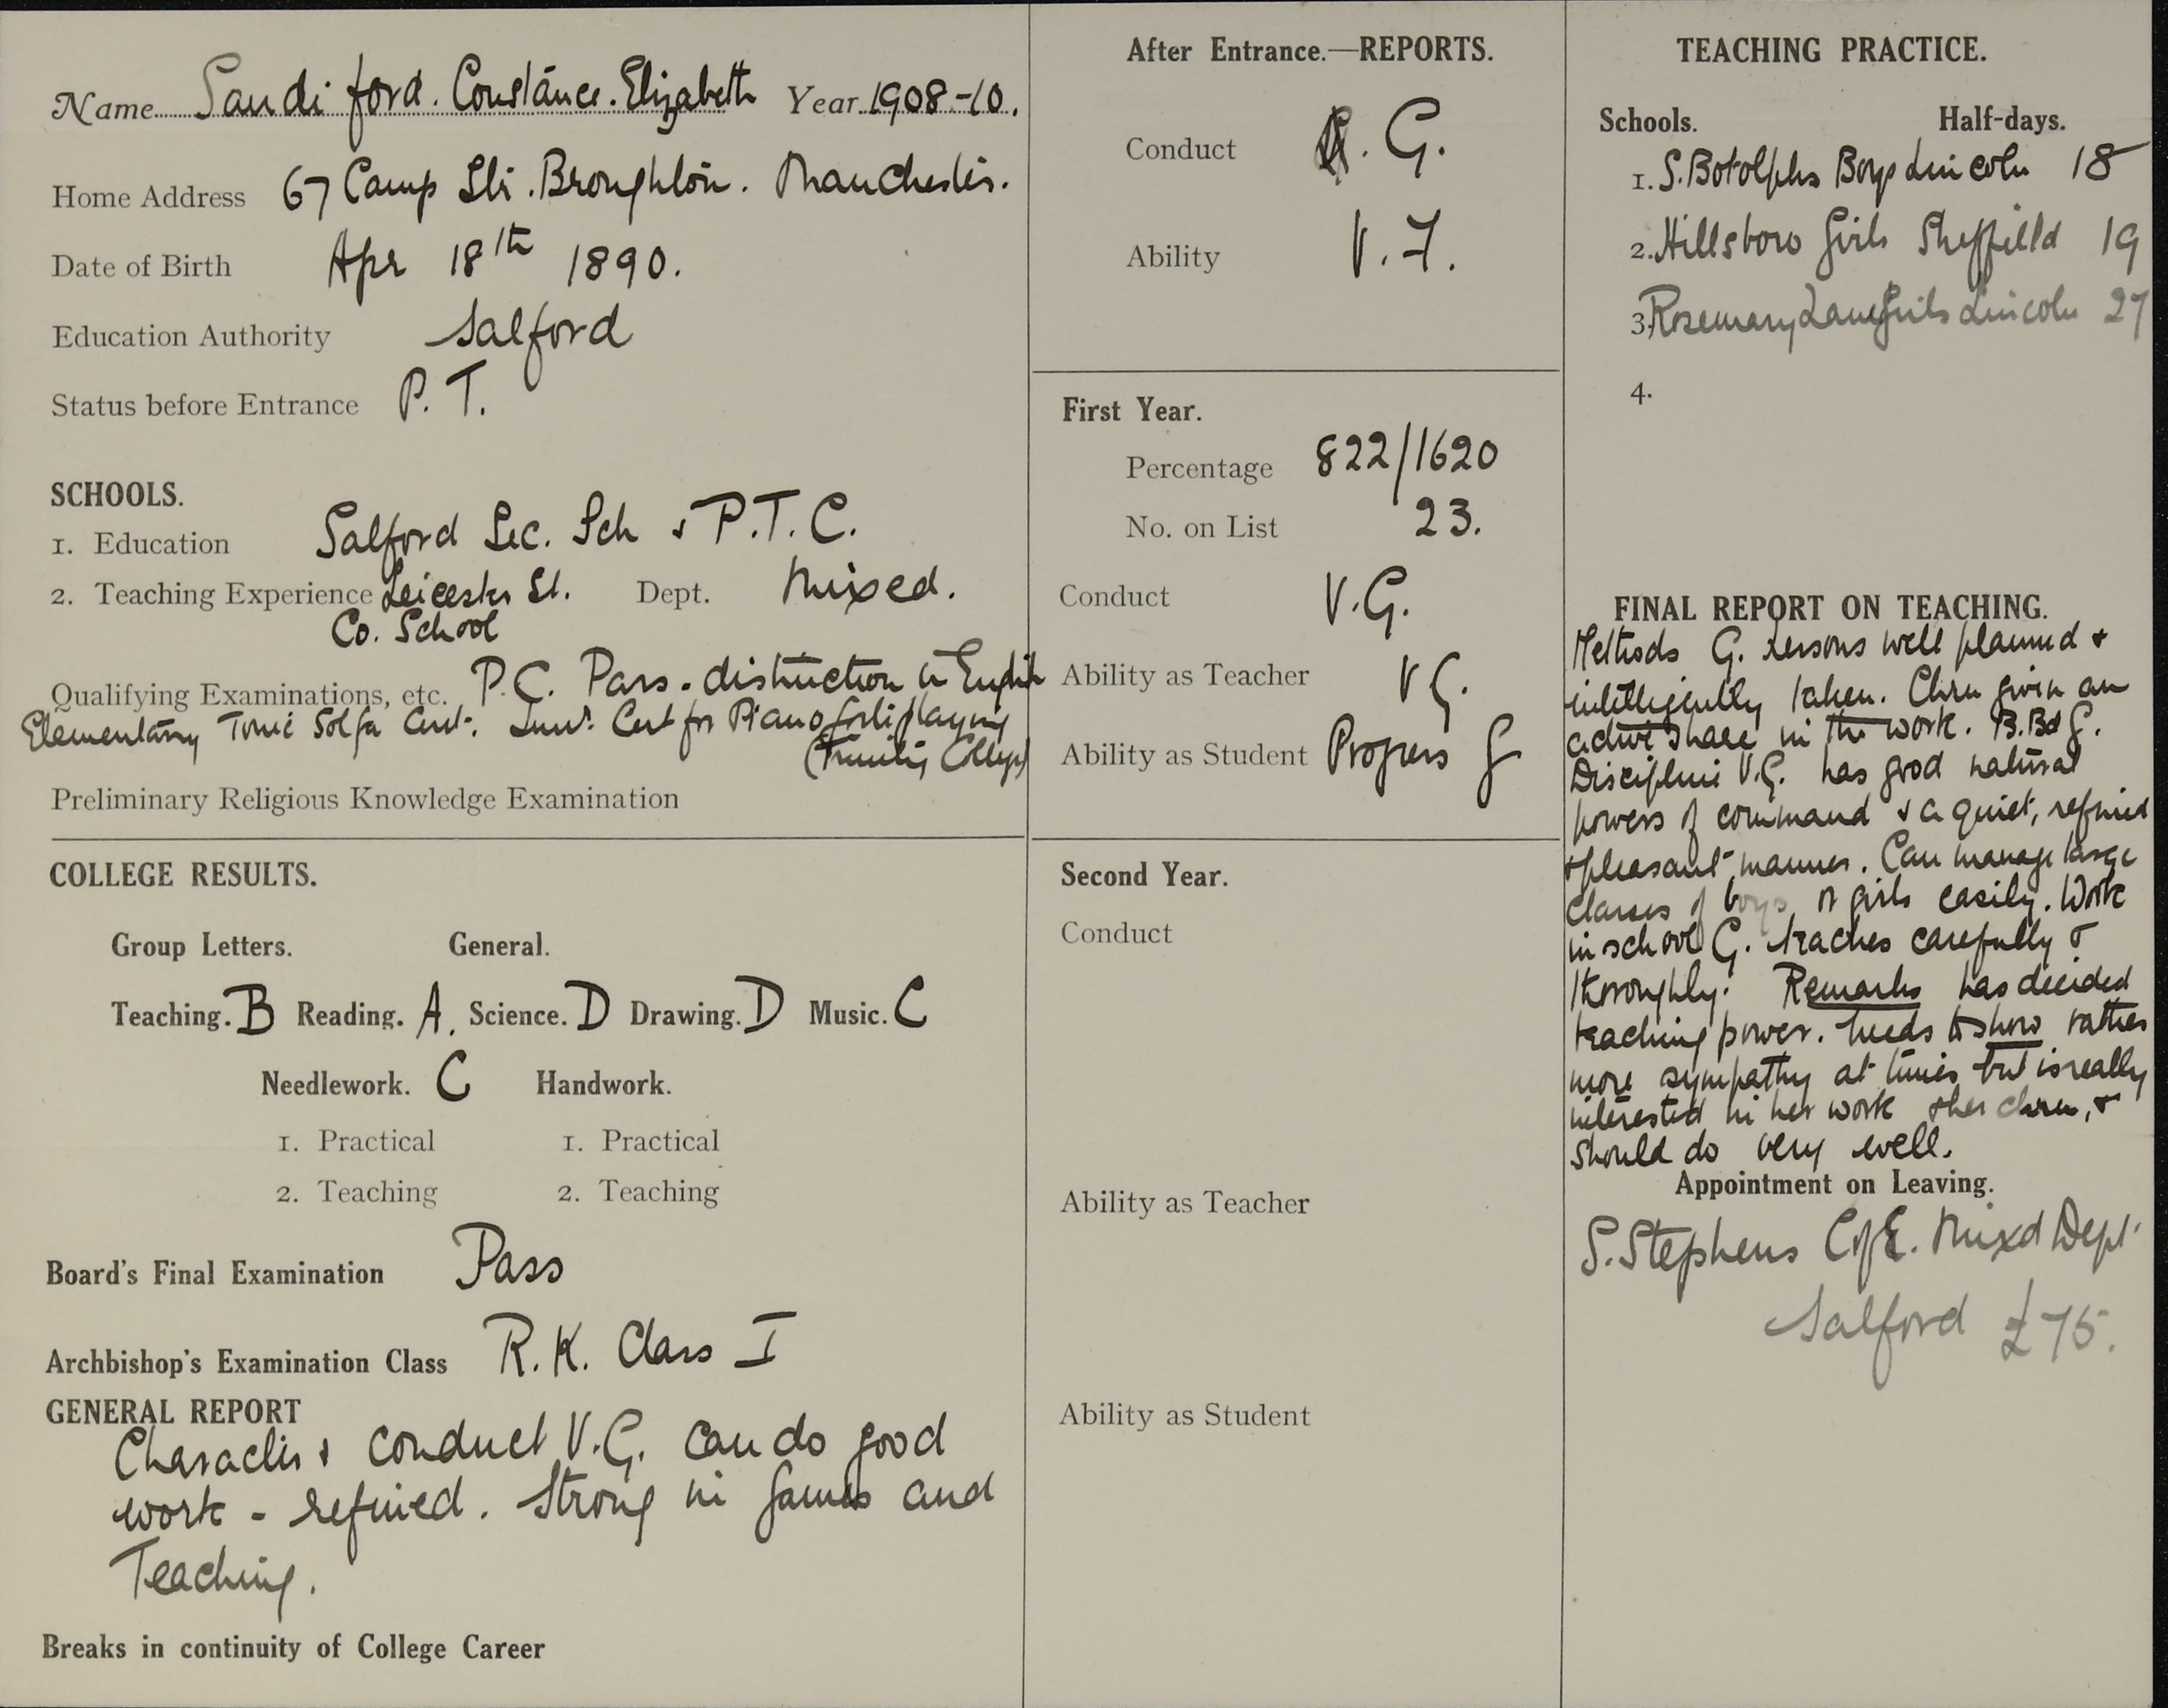 Name Sandiford. Constance. Elizabeth Year 1908-10.
Home Address 67 Camp St. Broughton. Manchester.
Date of Birth Apr 18th 1890.
Education Authority Salford
Status before Entrance P. T.
SCHOOLS.
1. Education Salford Sec. Sch & P.T.C.
2. Teaching Experience Leicester St. Dept. Mixed.
Co. School
Qualifying Examinations, etc. P.C. Pass. distinction in English
Elementary Tonic Solfa Cert. Cert for Pianoforte playing
(Trinity College)
Preliminary Religious Knowledge Examination
COLLEGE RESULTS.
Group Letters. General.
Teaching. B Reading. A. Science. D Drawing. D Music. C
Needlework. C Handwork.
1. Practical 1. Practical
2. Teaching 2. Teaching
Board's Final Examination Pass
Archbishop's Examination Class R.K. Class I
GENERAL REPORT
Character & conduct V.G. can do good
work - refined. Strong in games and
Teaching.
Breaks in continuity of College Career
After Entrance.—REPORTS.
Conduct G.
Ability V.F.
First Year.
Percentage 822/1620
No. on List 23.
Conduct V.G.
Ability as Teacher V G.
Ability as Student Progress G
Second Year.
Conduct
Ability as Teacher
Ability as Student
TEACHING PRACTICE.
Schools. Half-days.
1. S. Botolphs Boys Lincoln 18
2. Hillsboro Girls Sheffield 19
3. Rosemary Lane Girls Lincoln 27
4.
FINAL REPORT ON TEACHING.
Methods G. Lessons well planned &
intelligently taken. Chrn given an
active share in the work. B.Bd G.
Discipline V.G. has good natural
powers of command & a quiet, refined
& pleasant manner. Can manage large
classes of boys or girls easily. Work
in school G. teaches carefully &
thoroughly. Remarks has decided
teaching power. Needs to show rather
more sympathy at times but is really
interested in her work & her chren, &
should do very well.
Appointment on Leaving.
S. Stephens C of E. Mixd Dept.
Salford £75.